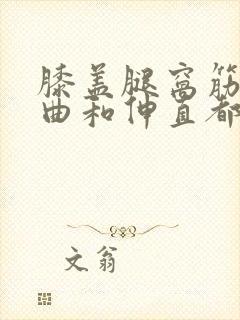 膝盖腿窝筋
曲和伸直都
文翁